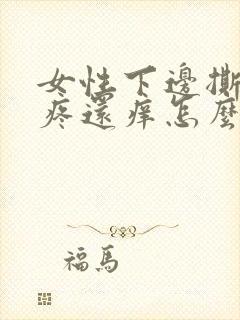 女性下邊撕
疼還癢怎麼
福馬